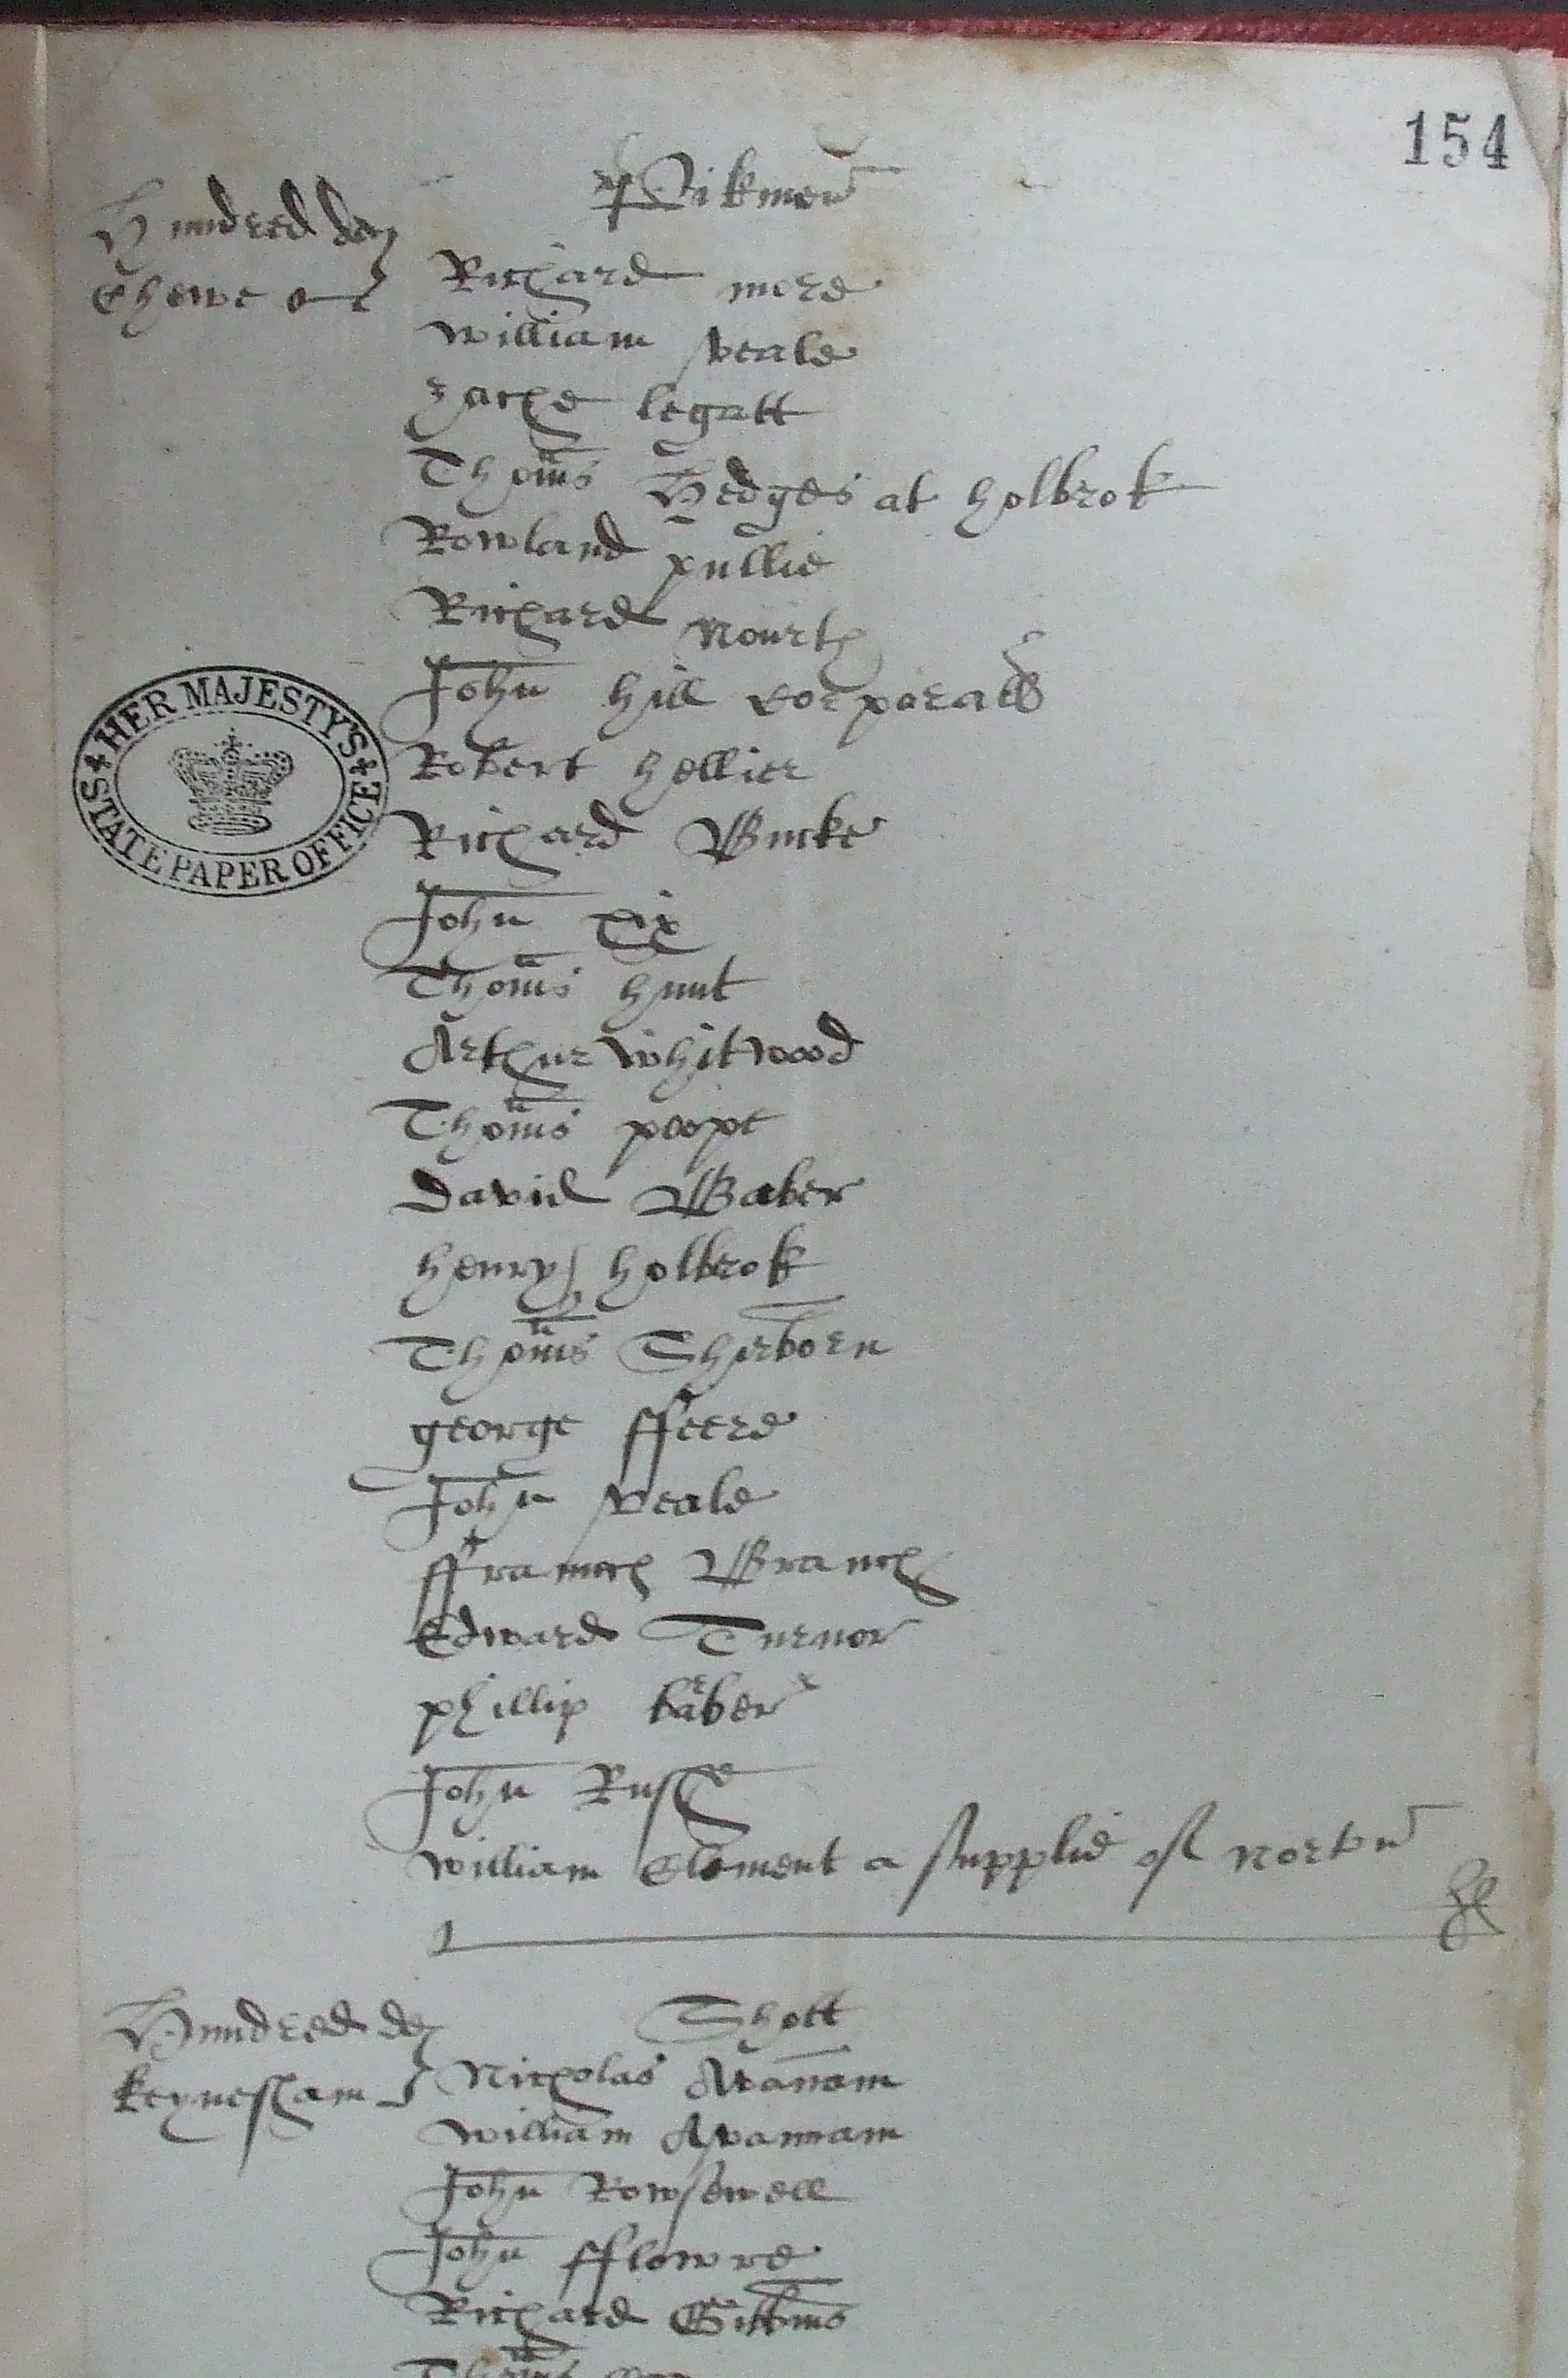 154
Pikmen
Hundred de
Chewe
Richard more
William veale
zache legatt
Thoms Hedges at holbrok
Rowland pullie
Richard Nourth
John hill corporall
HER MAJESTY'S
STATE PAPER OFFICE
Robert hellier
Richard Bucke
John pix
Thoms hunt
Arthur whitwood
Thoms peope
David Baber
henry holbrok
Thoms Sherborn
george ffeere
John veale
ffraunch Branch
Edward Turnor
phillip barber
John Rushe
William Clement a supplie of Norton
Hundred de
keynesham
Shott
Nicholas Avanam
William Avannam
John Rowsewell
John fflowre
Richard Gibbins
Thoms